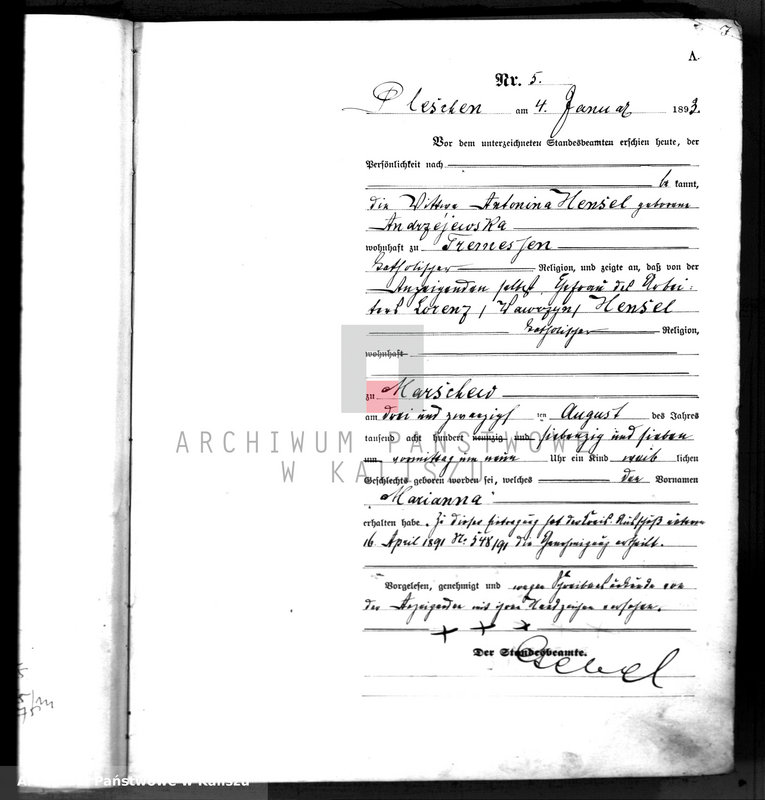 7.
A.
Nr. 5.
Pleschen am 4. Januar 1893.
Vor dem unterzeichneten Standesbeamten erschien heute, der
Persönlichkeit nach
be kannt,
die Wittwe Antonina Hensel geborene
Andrzejewska
wohnhaft zu Tremessen
katholischer Religion, und zeigte an, daß von der
Anzeigenden selbst, Ehefrau des Arbei-
ters Lorenz / Wawrzyn / Hensel
katholischer Religion,
wohnhaft
zu Marschew
am drei und zwanzigsten August des Jahres
tausend acht hundert neunzig und siebenzig und sieben
um vormittag um neun Uhr ein Kind weib lichen
Geschlechts geboren worden sei, welches den Vornamen
Marianna
erhalten habe. Zu dieser Eintragung hat der Kreis Ausschuß unterm
16 April 1891 No 548/91 die Genehmigung ertheilt.
Vorgelesen, genehmigt und wegen Schreibensunkunde von
der Anzeigenden mit ihren Handzeichen versehen.
+ + +
Der Standesbeamte.
ARCHIWUM PAŃSTWOWE
W KALISZU
Archiwum Państwowe w Kaliszu